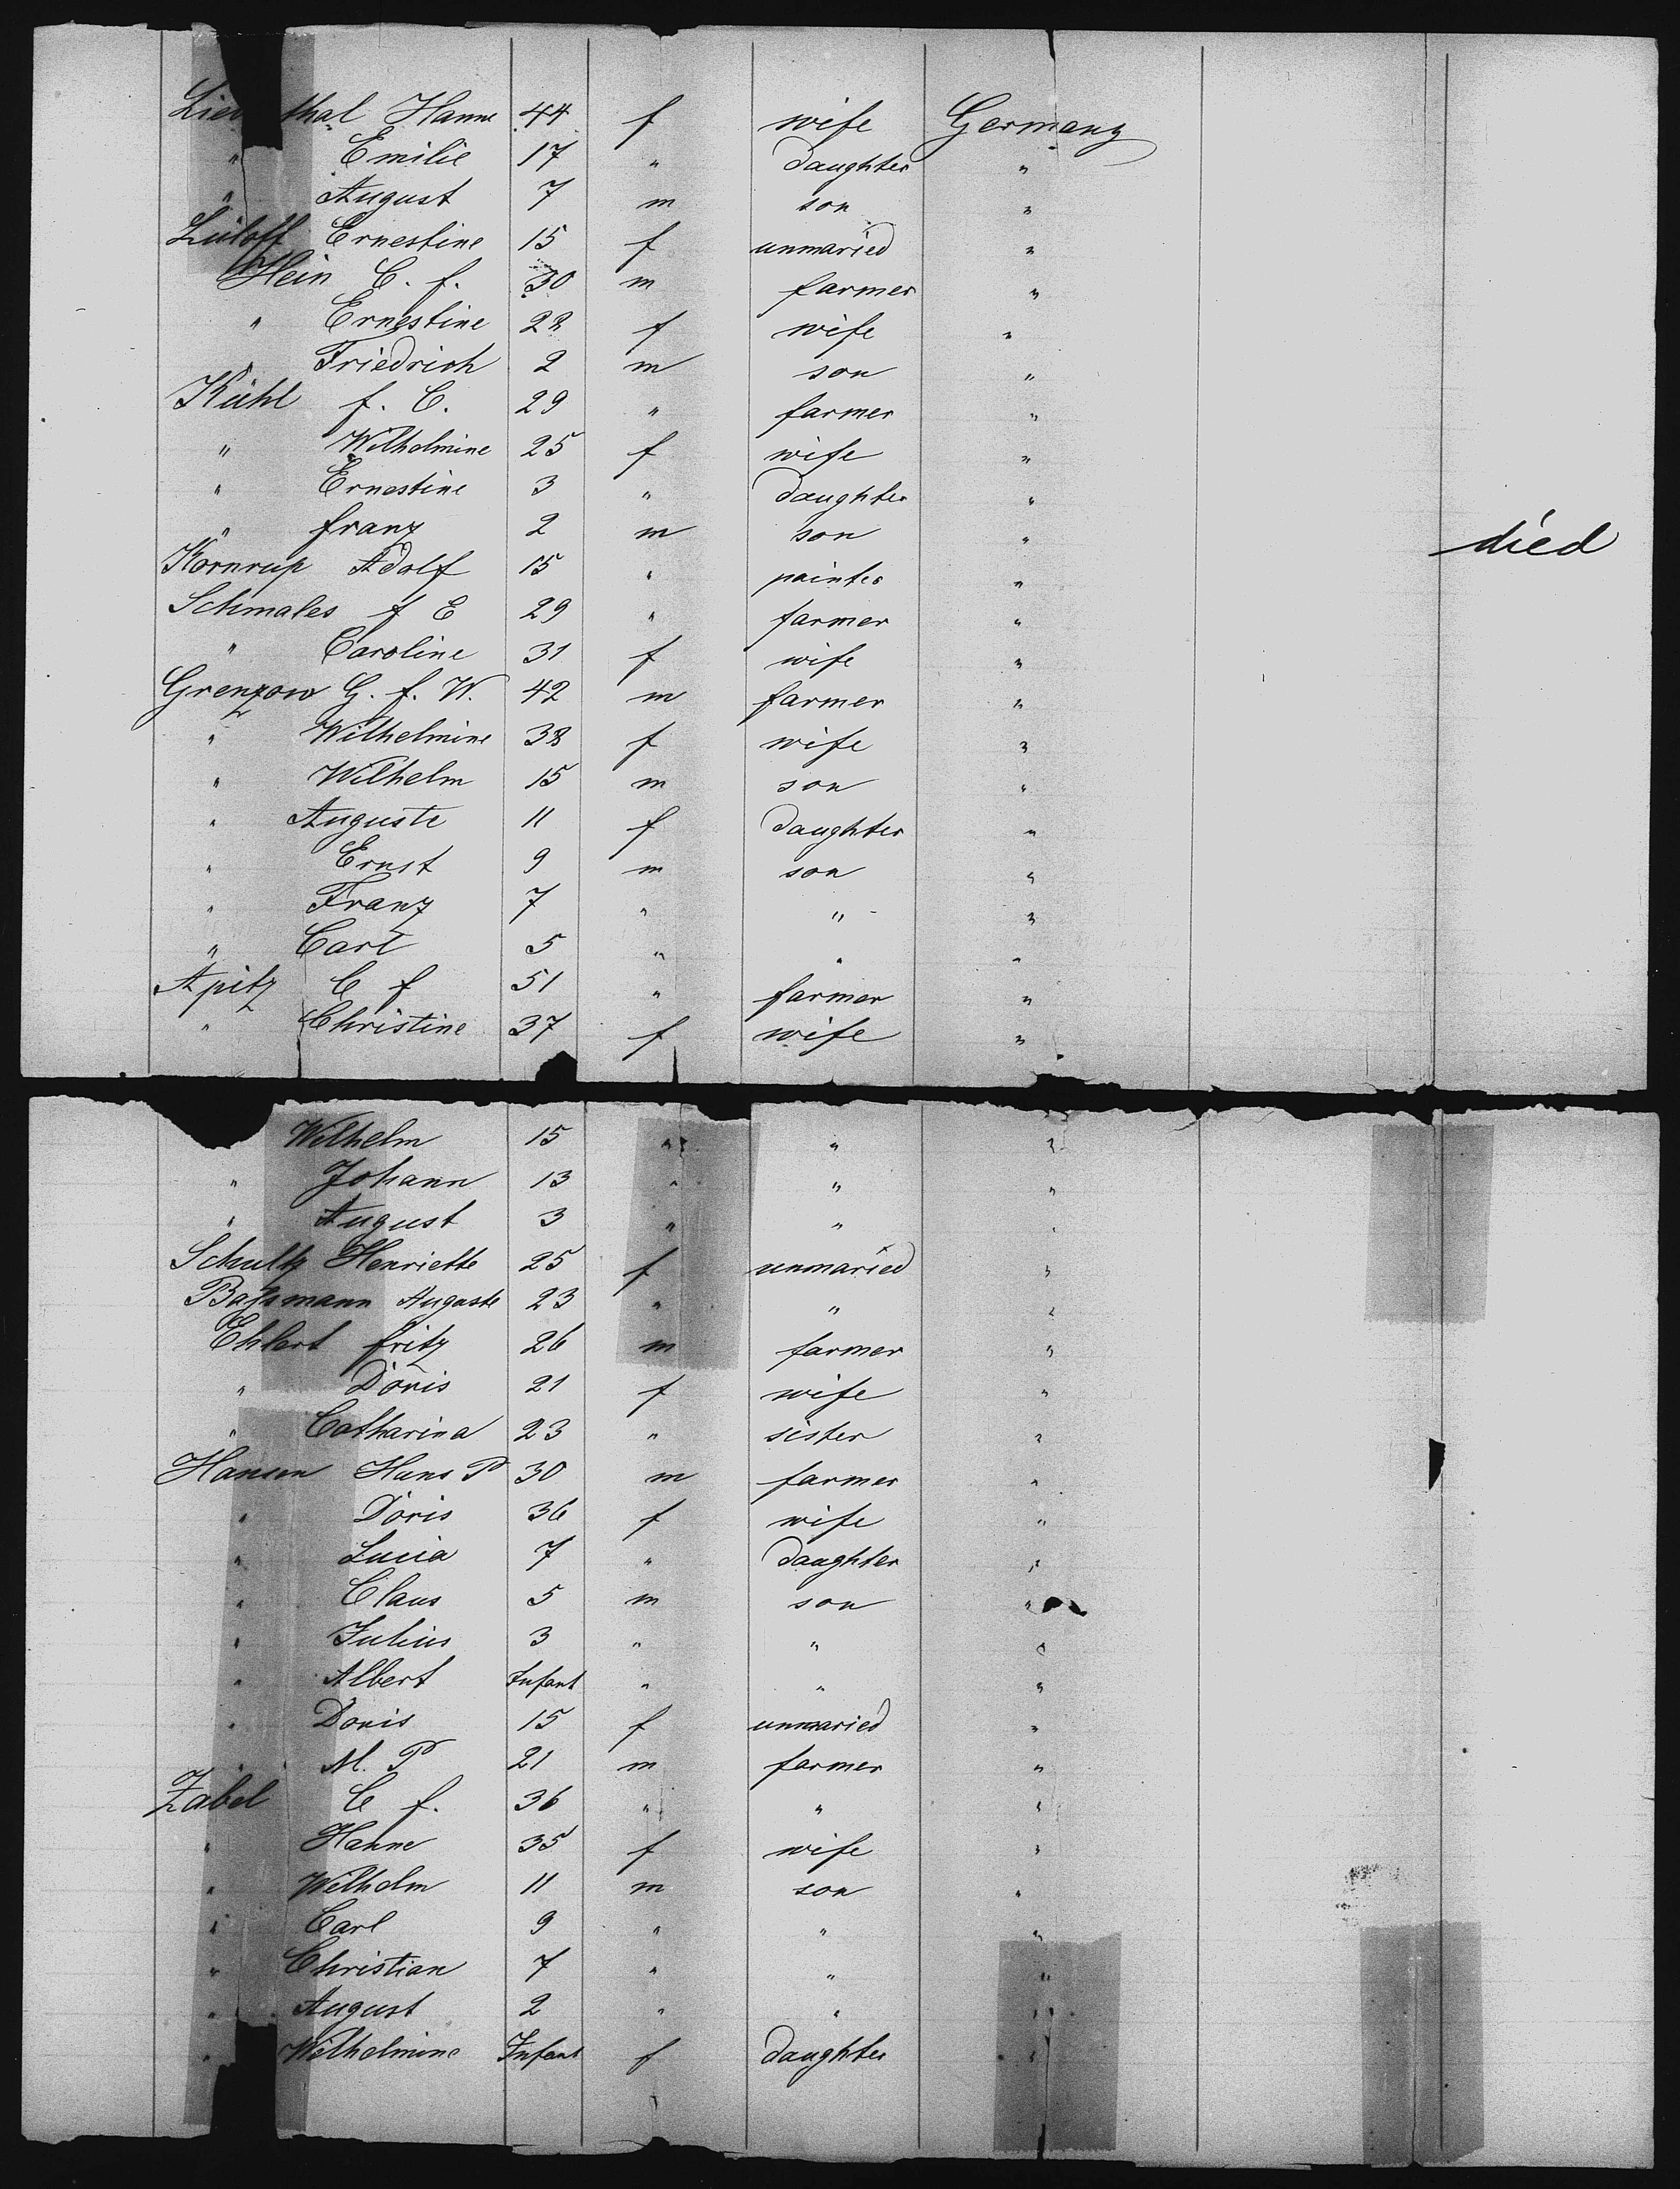 thal Hanne 44 f wife Germany
" Emilie 17 " daughter "
" August 7 m son "
Lüloff Ernestine 15 f unmaried "
Hein C. f. 30 m farmer "
" Ernestine 22 f wife "
" Friedrich 2 m son "
Kühl f. C. 29 " farmer "
" Wilhelmine 25 f wife "
" Ernestine 3 " daughter "
" franz 2 m son " died
Kornrup Adolf 15 " painter "
Schmales f E 29 " farmer "
" Caroline 31 f wife "
Grenzow G. f. W. 42 m farmer "
" Wilhelmine 38 f wife "
" Wilhelm 15 m son "
" Auguste 11 f daughter "
" Ernst 9 m son "
" Franz 7 " " "
" Carl 5 " " "
Apitz C f 51 " farmer "
" Christine 37 f wife "
Wilhelm 15 " " "
" Johann 13 " " "
" August 3 " " "
Schultz Henriette 25 f unmaried "
Baßmann Auguste 23 " " "
Ehlert fritz 26 m farmer "
" Doris 21 f wife "
" Catharina 23 " sister "
Hansen Hans P 30 m farmer "
" Doris 36 f wife "
" Lucia 7 " daughter "
" Claus 5 m son "
" Julius 3 " " "
" Albert Infant " " "
" Doris 15 f unmaried "
" M. P 21 m farmer "
Zabel C f. 36 " " "
" Hanne 35 f wife "
" Wilhelm 11 m son "
" Carl 9 " " "
" Christian 7 " " "
" August 2 " " "
" Wilhelmine Infant f daughter "